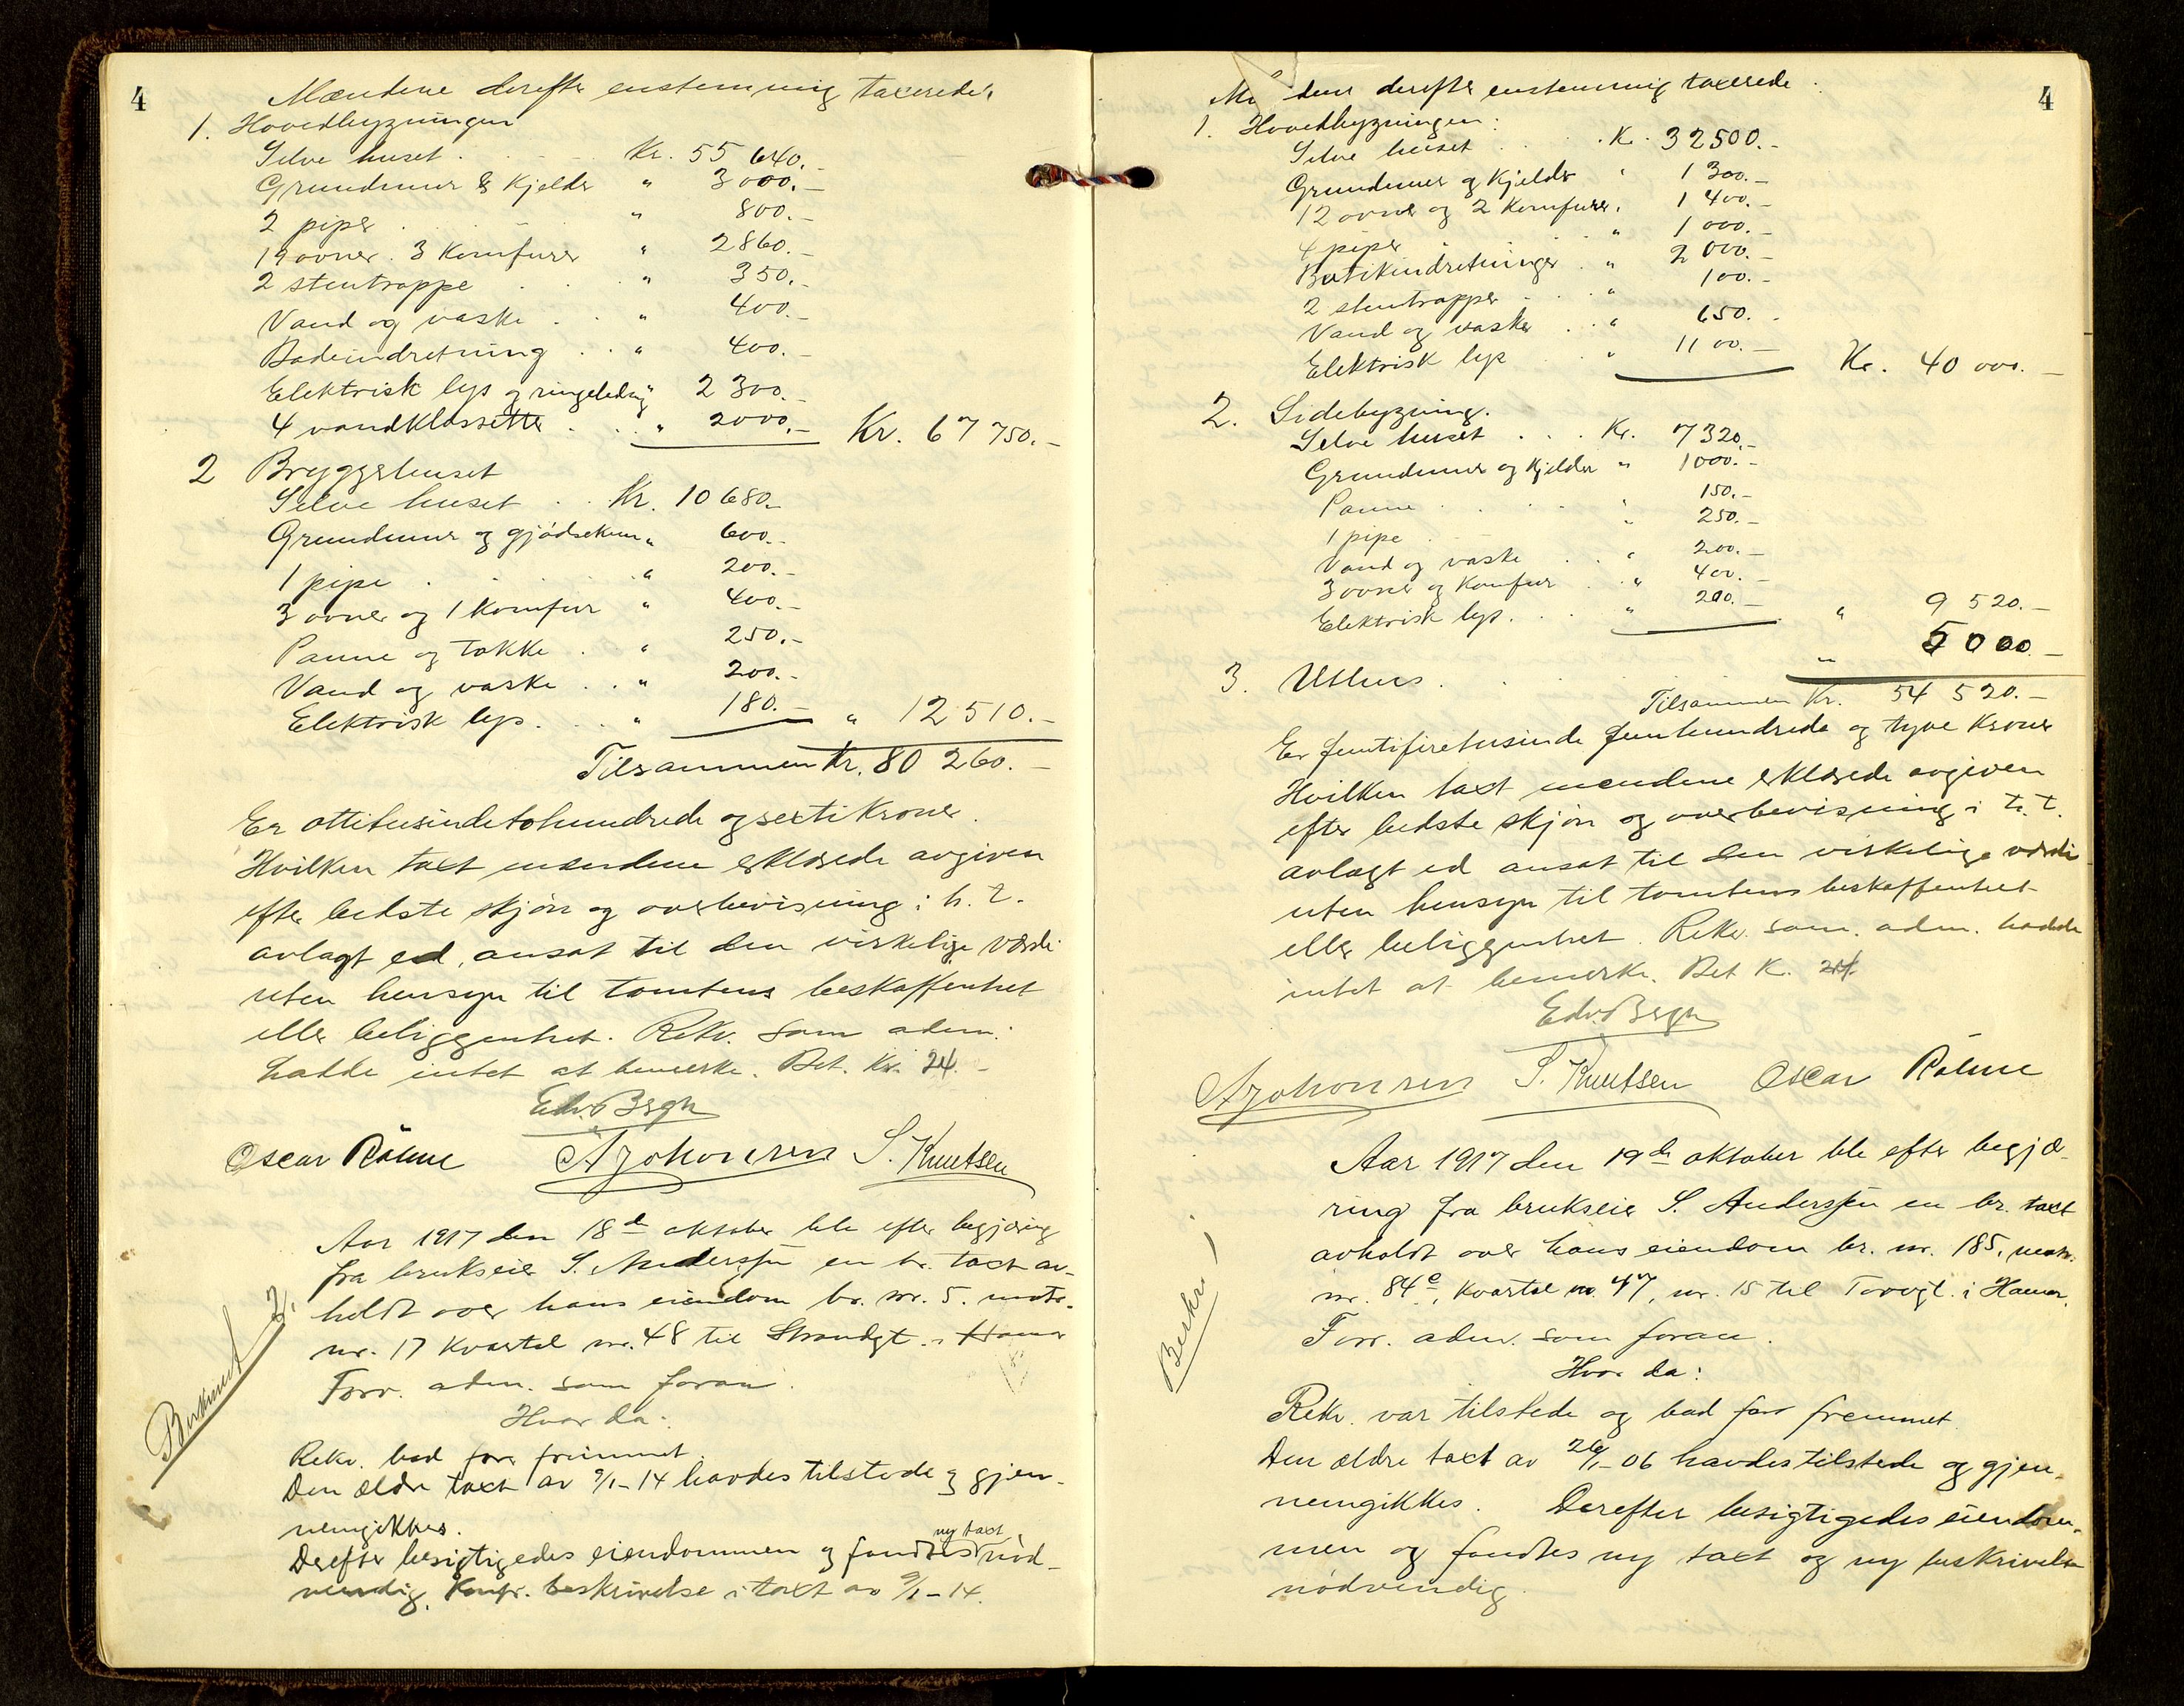 4
Mændene derefter enstemmig taxerede:
1. Hovedbygningen
Selve huset . . . Kr. 55 640.-
Grundmur & Kjelder " 3000.-
2 piper . . " 800.-
19 ovner. 3 Komfurer " 2860.-
2 stentrappe . . . " 350.-
Vand og vaske . . " 400.-
Badeindretning . . " 400.-
Elektrisk lys og ringeledng " 2300.-
4 vandklossetter . . . " 2000.- Kr. 67 750.-
2 Bryggehuset
Selve huset . . Kr. 10 680.-
Grundmur og gjødsekum " 600.-
1 pipe . . . . " 200.-
3 ovner og 1 Komfur " 400.-
Panne og takke . . " 250.-
Vand og vaske . . " 200.-
Elektrisk lys. . . " 180.- " 12 510.-
Tilsammen Kr. 80 260.-
Er ottitusindetohundrede og sexti Kroner.
Hvilken taxt mændene erklærede avgiven
efter bedste skjøn og overbevisning i h. t.
avlagt ed, ansat til den virkelige værdi
uten hensyn til tomtens beskaffenhet
eller beliggenhet. Rekv. som adm.
hadde intet at bemerke. Bet. Kr. 24.-
Edv. Bergh
Oscar Røhne AJohansen S. Knutsen
Aar 1917 den 18de oktober ble efter begjæring
fra brukseier S. Anderssen en br. taxt av-
holdt over hans eiendom br. nr. 5. matr.
nr. 17 Kvartal nr. 48 til Strandgt. i Hamar
Forr. adm. som foran.
Hvor da:
Beskrevet 2.
Rekv. bad forr fremmet.
Den ældre taxt av 9/1-14 havdes tilstede og gjen-
nemgikkes.
ny taxt
Derefter besigtigedes eiendommen og fandtes nød-
vendig. Konfr. beskrivelse i taxt av 9/1-14.
4
Mæ dene derefter enstemmig taxerede:
1. Hovedbygningen:
Selve huset . . . Kr. 32500.-
Grundmur og Kjelder " 1300.-
12 ovner og 2 Komfurer. " 1400.-
4 piper . . . " 1000.-
Butikindretninger . " 2000.-
2 stentrapper . . . " 100.-
Vand og vasker . . " 650.-
Elektrisk lys . . " 1100.- Kr. 40 000.-
2. Sidebygning.
Selve huset . . . Kr. 7320.-
Grundmur og Kjelder " 1000.-
Panne . . . . " 150.-
1 pipe . . . " 250.-
Vand og vaske . . " 200.-
3 ovner og Komfur . . " 400.-
Elektrisk lys. . . " 200.- " 9 520.-
3. Uthus . . . " 5000.-
Tilsammen Kr. 54 520.-
Er femtifiretusinde femhundrede og tyve Kroner
Hvilken taxt mændene erklærede avgiven
efter bedste skjøn og overbevisning i h. t.
avlagt ed ansat til den virkelige værdi
uten hensyn til tomtens beskaffenhet
eller beliggenhet. Rekv. som adm. hadde
intet at bemerke. Bet K. 24
Edv. Bergh
AJohansen S. Knutsen Oscar Røhne
Aar 1917 den 19de oktober ble efter begjæ-
ring fra brukseier S. Anderssen en br. taxt
avholdt over hans eiendom br. nr. 185, matr.
nr. 84e, Kvartal no. 47, nr. 15 til Torvgt. i Hamar.
Forr. adm. som foran.
Hvor da:
Beskr. 1
Rekv. var tilstede og bad forr fremmet.
Den ældre taxt av 26/1-06 havdes tilstede og gjen-
nemgikkes. Derefter besigtigedes eiendom-
men og fandtes ny taxt og ny beskrivelse
nødvendig.